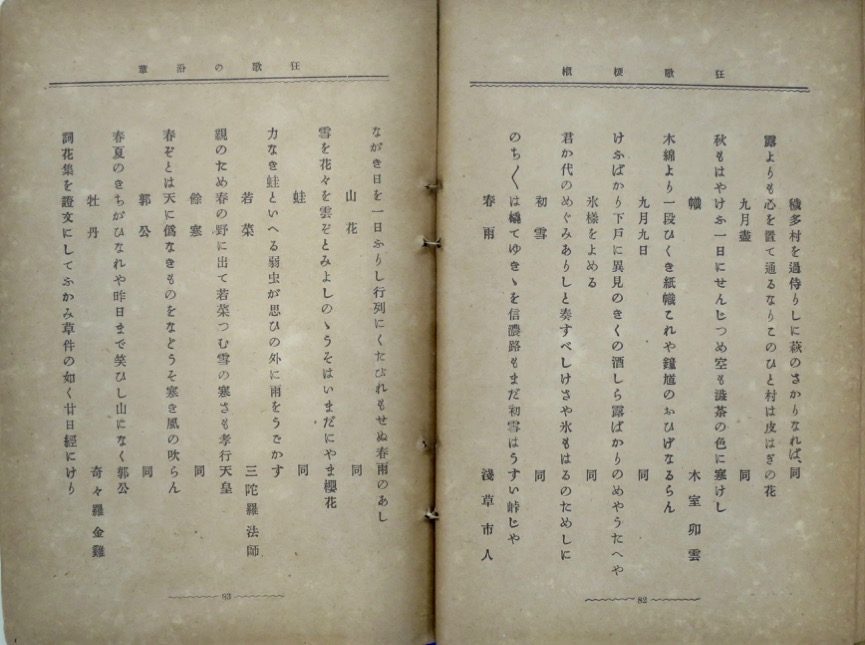 狂歌梗概
穢多村を過侍りしに萩のさかりなれば、同
露よりも心を置て通るなりこのひと村は皮はぎの花
九月盡　同
秋もはやけふ一日にせんじつめ空も澁茶の色に寒けし
幟　木室卯雲
木綿より一段ひくき紙幟これや鐘馗のおひげなるらん
九月九日　同
けふばかり下戸に異見のきくの酒しら露ばかりのめやうたへや
氷樣をよめる　同
君か代のめぐみありしと奏すべしけさや氷もはるのためしに
初雪　同
のち〱は蟯てゆきゝを信濃路もまだ初雪はうすい峠じや
春雨　淺草市人
82
狂歌の沿革
ながき日を一日ふりし行列にくたびれもせぬ春雨のあし
山花　同
雪を花々を雲ぞとみよしのゝうそはいまだにやま櫻花
蛙　同
力なき蛙といへる弱虫が思ひの外に雨をうでかす
若菜　三陀羅法師
親のため春の野に出て若菜つむ雪の寒さも孝行天皇
餘寒　同
春ぞとは天に僞なきものをなどうそ寒き風の吹らん
郭公　同
春夏のきちがひなれや昨日まで笑ひし山になく郭公
牡丹　奇々羅金鷄
詞花集を證文にしてふかみ草件の如く廿日經にけり
83